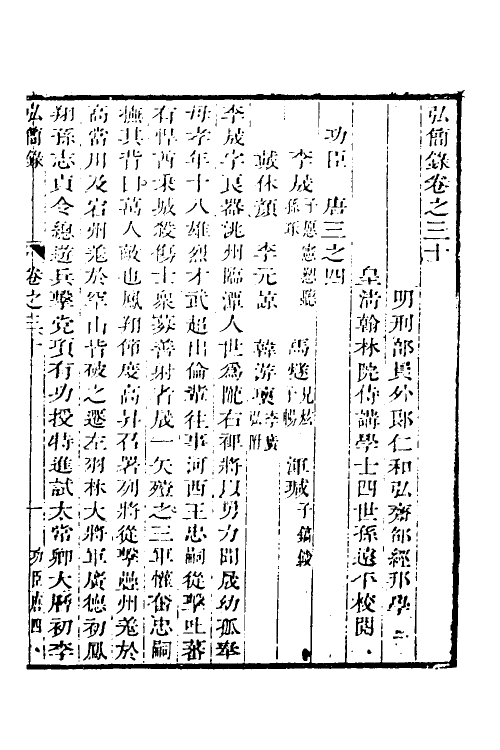 弘簡錄卷之三十
明刑部員外郎仁和弘齋邵經邦學
皇清翰林院侍講學士四世孫遠平校閱
功臣 唐三之四
李晟子愿憲愬聽孫琢 馬燧兄炫子暢 渾瑊子鎬鐬
戴休顏 李元諒 韓游瓌李廣弘附
李晟字良器洮州臨潭人世爲隴右裨將以勇力聞晟幼孤奉
母孝年十八雄烈才武超出倫輩往事河西王忠嗣從擊吐蕃
有悍酋乘城殺傷士衆募善射者晟一矢殪之三軍懽奮忠嗣
撫其背曰萬人敵也鳳翔節度高昇召署列將從擊疊州羌於
高當川及宕州羌於罕山皆破之遷左羽林大將軍廣德初鳳
翔孫志直令總遊兵擊党項有功授特進試太常卿大曆初李
弘簡錄 卷之三十 一 功臣唐四